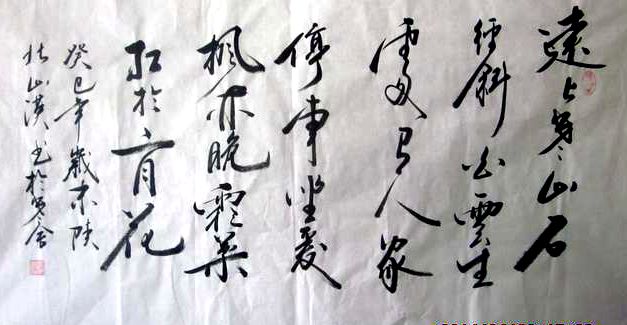 遠上寒山石
徑斜白雲生
處有人家
停車坐愛
楓林晚霜葉
紅於二月花
癸巳年歲末陸
山漢书於寒舍